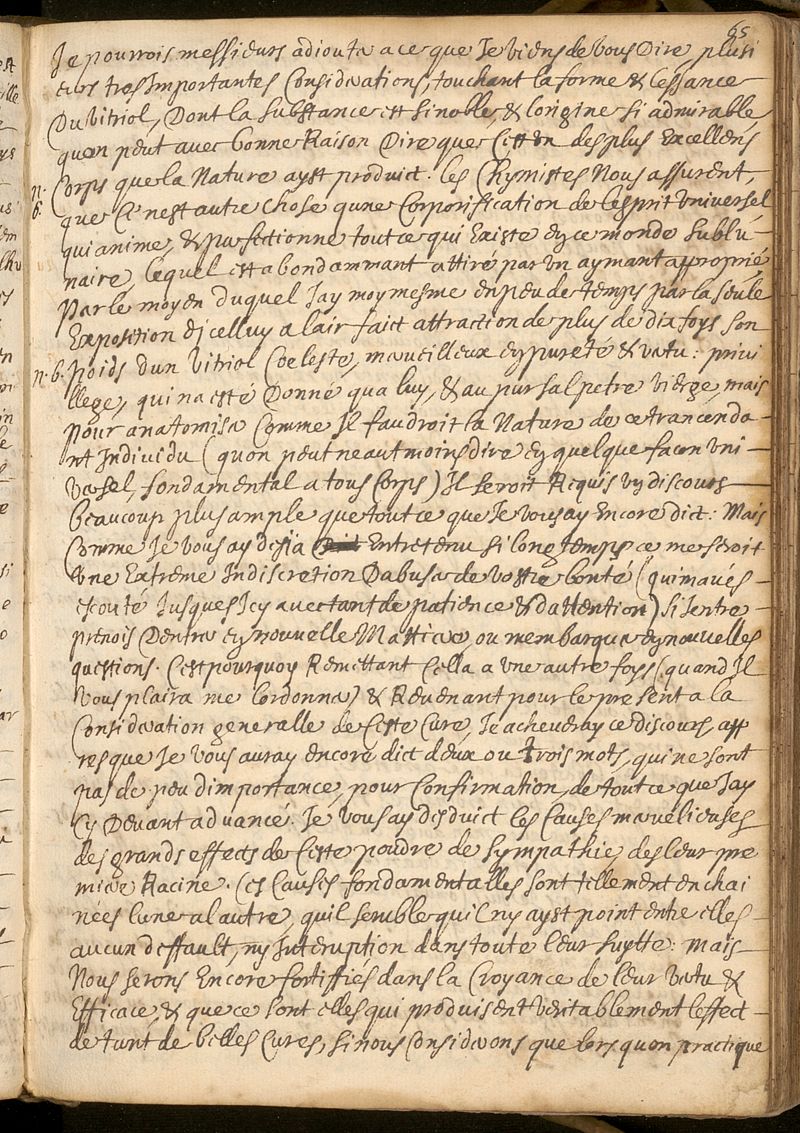 65
Je pourrois messieurs adiouter a ce que Je viens de vous Dire plusi
eurs tres Importantes Considerations, touchant la forme & lessance
Du vitriol, Dont la substance est si noble, & lorigine si admirable
quon peut avec bonne Raison Dire que Cest un des plus Excellens
n. Corps que la Nature ayst produict. les Chymistes Nous assurent,
6. que Ce nest autre Chose qune Corporification de lesprit Universel
qui anime, & perfectionne tout ce qui Existe en ce monde sublu-
naire, lequel est abondammant attiré par un aymant approprié
Par le moyen duquel Jay moymesme en peu de temps par la seule
Exposition dicelluy a lair faict attraction de plus de dix foys son
n. 6. Poids dun Vitriol Coeleste, merveilleux en pureté & vertu: privi
llege, qui na esté Donné qua luy, & au pur salpetre vierge, mais
pour anatomiser Comme Il faudroit la Nature de ce trancenda-
nt Individu (quon peut neautmoins dire en quelque facon uni-
versel, fondamental a tous Corps) Il seroit Requis un discours
beaucoup plus ample que tout ce que Je vous ay Encore dict: Mais
Comme Je vous ay desja Entretenu si long temps ce me seroit
une Extreme Indiscretion Dabuser de vostre bonté (qui mavés-
escouté Jusques Icy avec tant de patience & dattention) si Jentre-
prenois Dentrer en nouvelle Mattiere, ou membarquer en nouvelles
questions. Cest pourquoy Remettant Cella a une autre foys (quand Il
vous plaira me lordonner) & Revenant pour le present a la
Consideration generalle de Ceste Cure, Je acheveray ce discours, app
res que Je vous auray encore dict deux ou trois mots, qui ne sont
pas de peu dimportance, pour Confirmation, de tout ce que Jay
Cy Devant advancé. Je vous ay desduict les Causes merveilieuses
des grands effects de Ceste poudre de sympathie, des leur pre
miere Racine. Ces Causes fondamentalles sont tellement enchai
nées lune a lautre, quil semble quil ny ayst point entre elles-
aucun deffault, ny Interuption dans toute leur suytte: mais-
Nous serons Encore fortiffiés dans la Croyance de leur vertu &
Efficace, & que ce sont elles qui produisent veritablement leffect-
de tant de belles Cures, si nous Considerons que lors quon practique